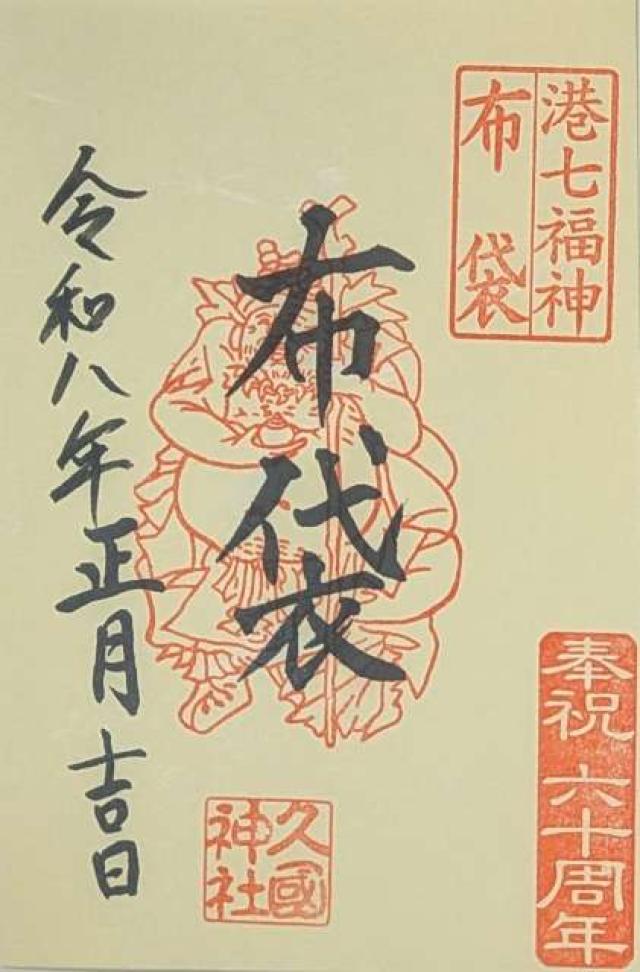 港七福神
布袋
布袋
令和八年正月吉日
奉祝 六十周年
久國
神社